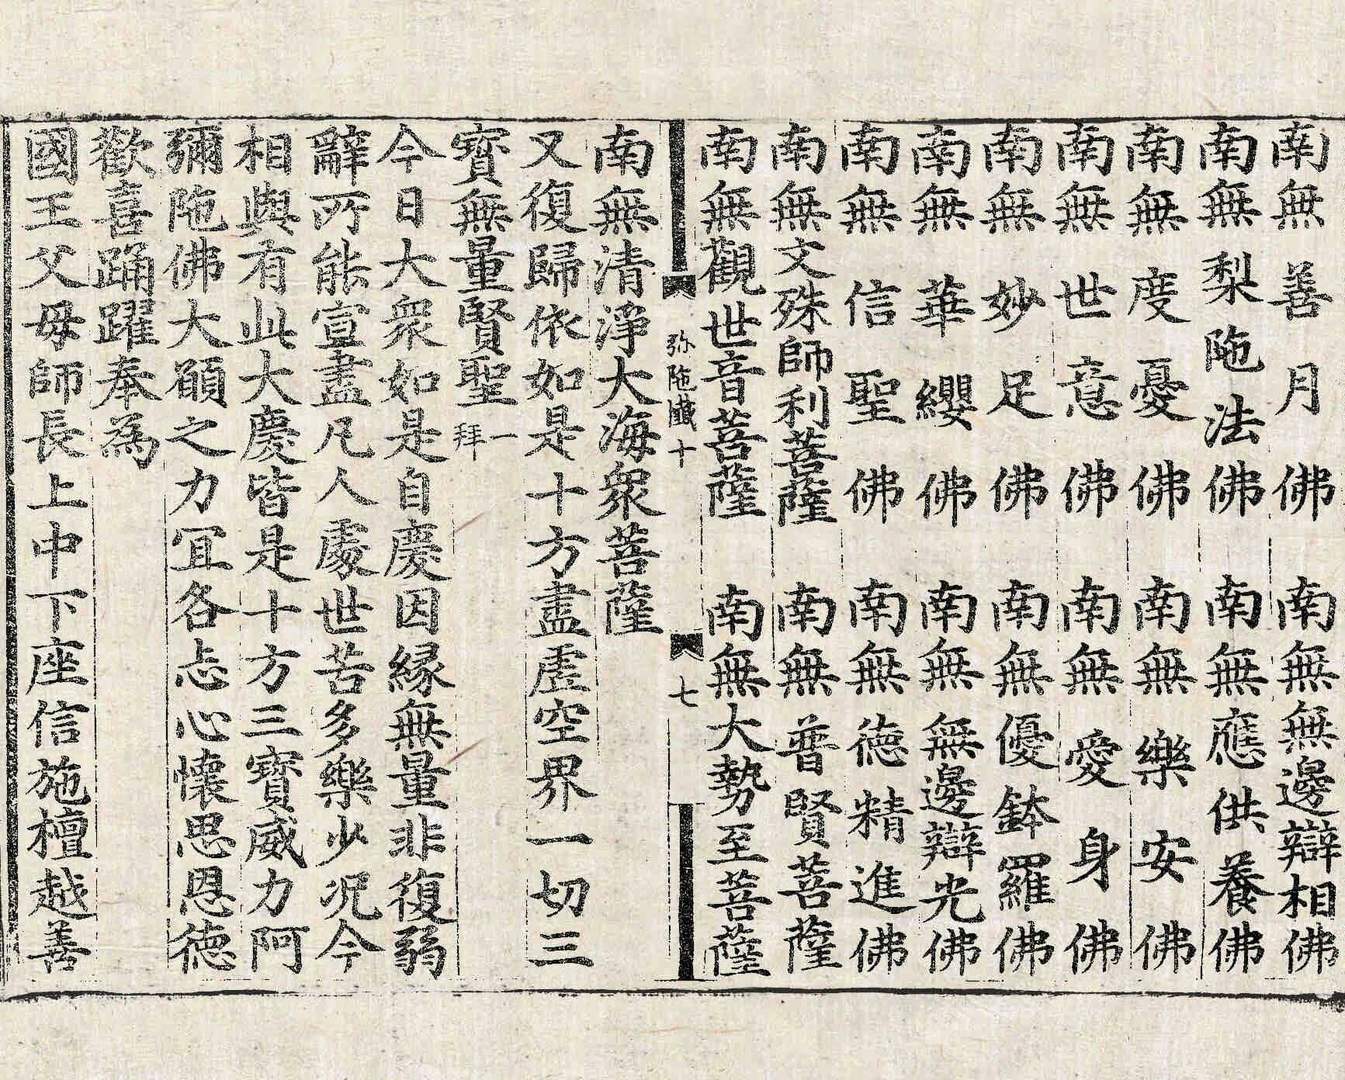 南無善月佛　南無無邊辯相佛
南無梨陁法佛　南無應供養佛
南無度憂佛　南無樂安佛
南無世意佛　南無愛身佛
南無妙足佛　南無優鉢羅佛
南無華纓佛　南無無邊辯光佛
南無信聖佛　南無德精進佛
南無文殊師利菩薩　南無普賢菩薩
南無觀世音菩薩　南無大勢至菩薩
弥陁懺十　七
南無清淨大海衆菩薩
又復歸依如是十方盡虛空界一切三
寶無量賢聖一拜
今日大衆如是自慶因緣無量非復弱
辭所能宣盡凡人處世苦多樂少况今
相與有此大慶皆是十方三寶威力阿
彌陁佛大願之力冝各志心懷思恩德
歡喜踊躍奉為
國王父母師長上中下座信施檀越善